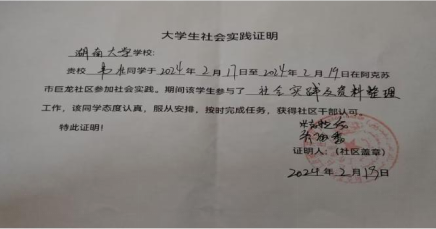 大学生社会实践证明
湖南大学学校:
贵校 同学于2024年2月17日至2024年2月19日在阿克苏
市巨龙社区参加社会实践。期间该学生参与了 社会实践及资料整理
工作,该同学态度认真,服从安排,按时完成任务,获得社区干部认可。
特此证明!
证明人:(社区盖章)
2024年2月19日